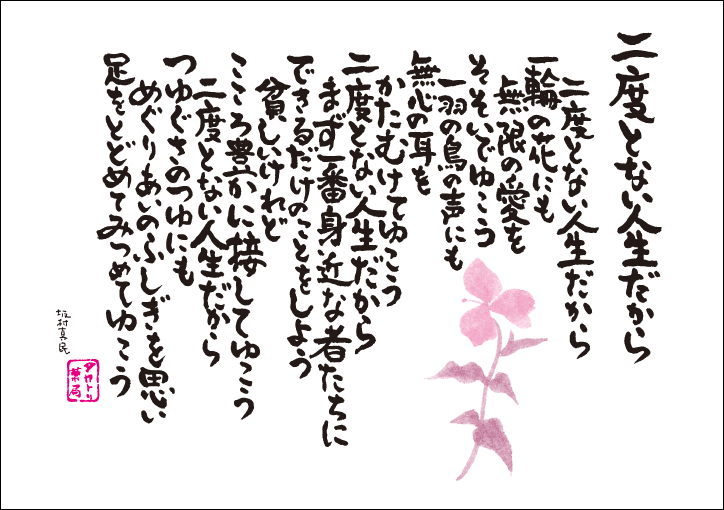 二度とない人生だから
二度とない人生だから
一輪の花にも
無限の愛を
そそいでゆこう
一羽の鳥の声にも
無心の耳を
かたむけてゆこう
二度とない人生だから
まず一番身近な者たちに
できるだけのことをしよう
貧しいけれど
こころ豊かに接してゆこう
二度とない人生だから
つゆぐさのつゆにも
めぐりあいのふしぎを思い
足をとどめてみつめてゆこう
坂村真民
タカトリ
薬局